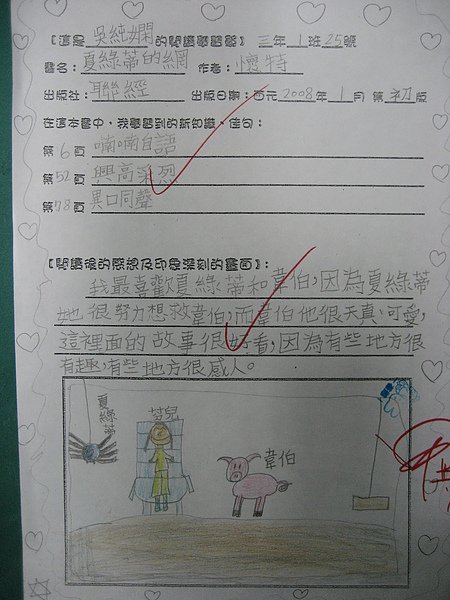 【這是 吳純嫻 的閱讀學習單】 三年 1 班 25 號
書名：夏綠蒂的網 作者：懷特
出版社：聯經 出版日期：西元 2008 年 1 月 第 初 版
在這本書中，我學習到的新知識、佳句：
第 6 頁 喃喃自語
第 52 頁 興高采烈
第 78 頁 異口同聲
【閱讀後的感想及印象深刻的畫面】：
我最喜歡夏綠蒂和韋伯，因為夏綠蒂
她很努力想救韋伯，而韋伯他很天真、可愛，
這裡面的故事很好看，因為有些地方很
有趣，有些地方很感人。
夏綠蒂
芬兒
韋伯